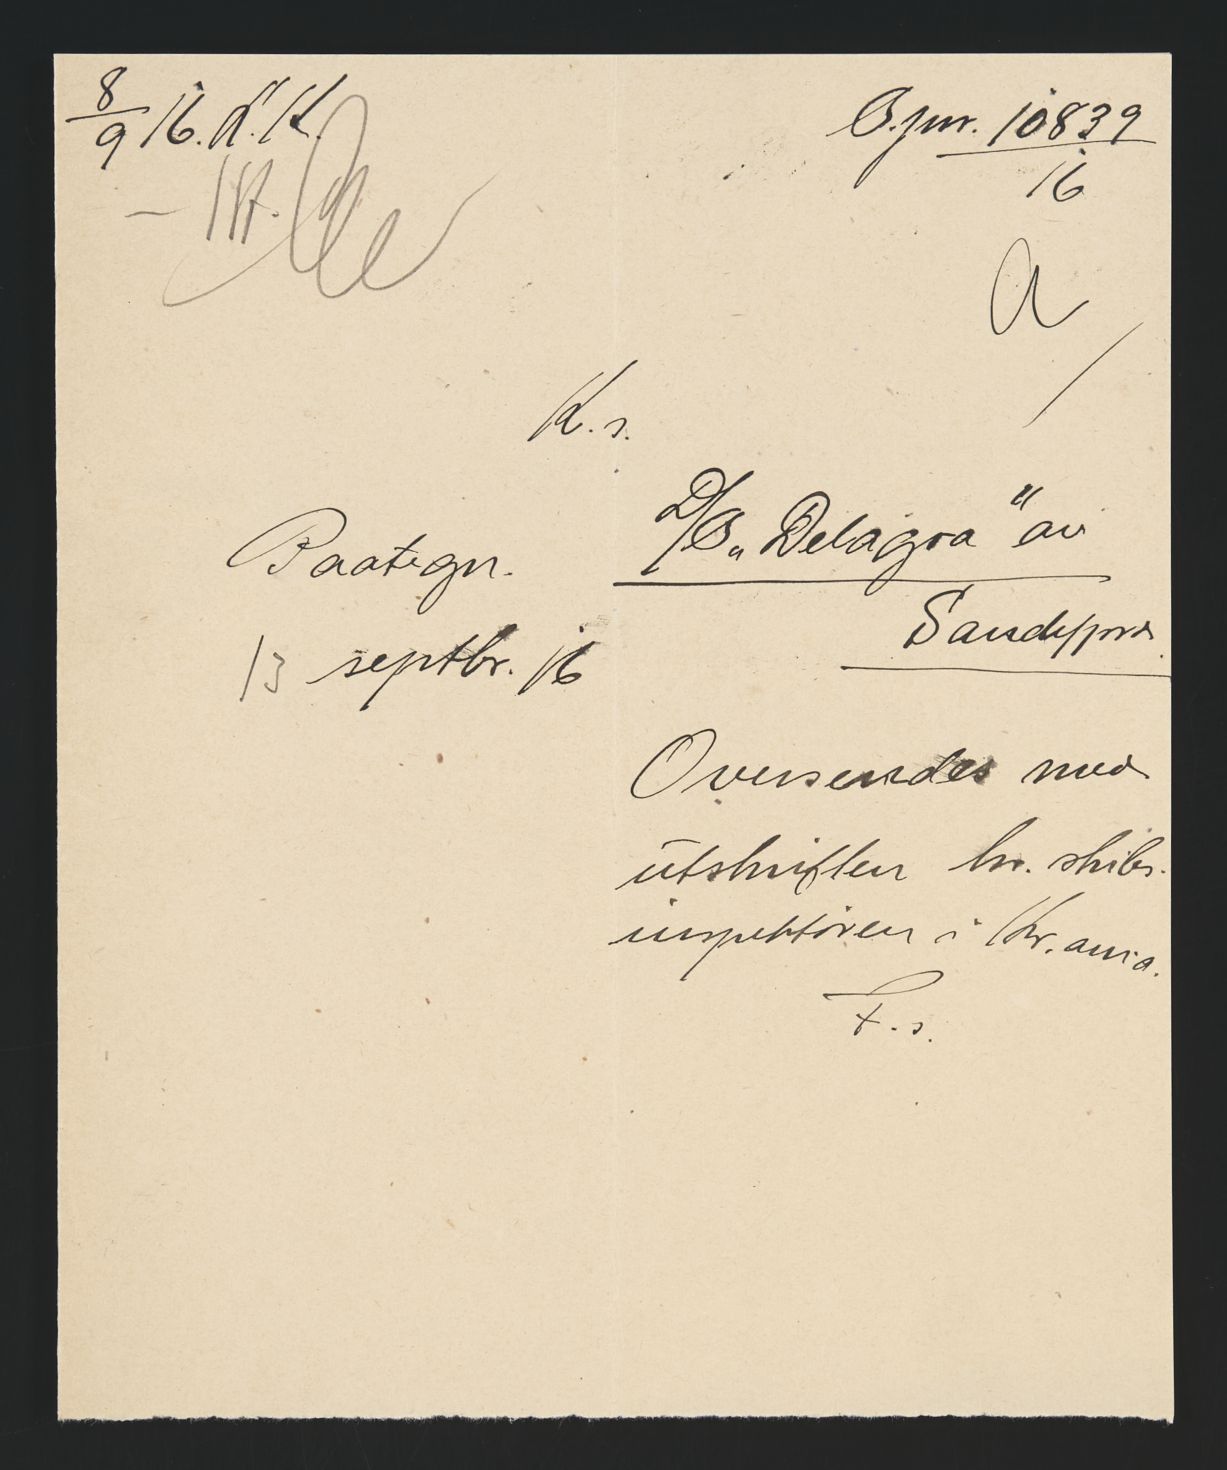 8/9 16. K.
B.jnr. 10839
16
a
K. s.
Paategn.
13 septbr. 16
D/S „Delagoa" av
Sandefjord.
Oversendes med
utskriften hr. skibs-
inspektøren i Kr.ania.
F. s.